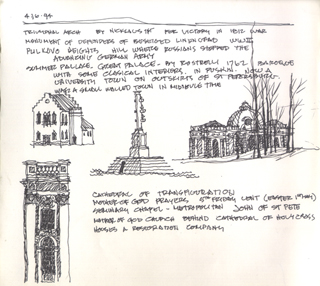 4·16·94
TRIUMPHAL ARCH BY NICHOLAS 1ST FOR VICTORY IN 1812 WAR
MONUMENT OF DEFENDERS OF BESEIGED LENINGRAD WWII
PULKOVO HEIGHTS, HILL WHERE RUSSIANS STOPPED THE
ADVANCING GERMAN ARMY
SUMMER PALACE, GREAT PALACE - BY RASTRELLI 1762 BAROQUE
WITH SOME CLASICAL INTERIORS. IN PUSHKIN. NOW A
UNIVERSITY TOWN ON OUTSKIRTS OF ST PETERSBURG.
WAS A SMALL WALLED TOWN IN
CATHEDRAL OF TRANSFIGURATION
MOTHER OF GOD PRAYERS 5TH FRIDAY LENT (EASTER 1ST MAY)
SEMINARY CHAPEL - METROPOLITAN JOHN OF ST PETE
MOTHER OF GOD CHURCH BEHIND CATHEDRAL OF HOLY CROSS
HOUSES A RESTORATION COMPANY